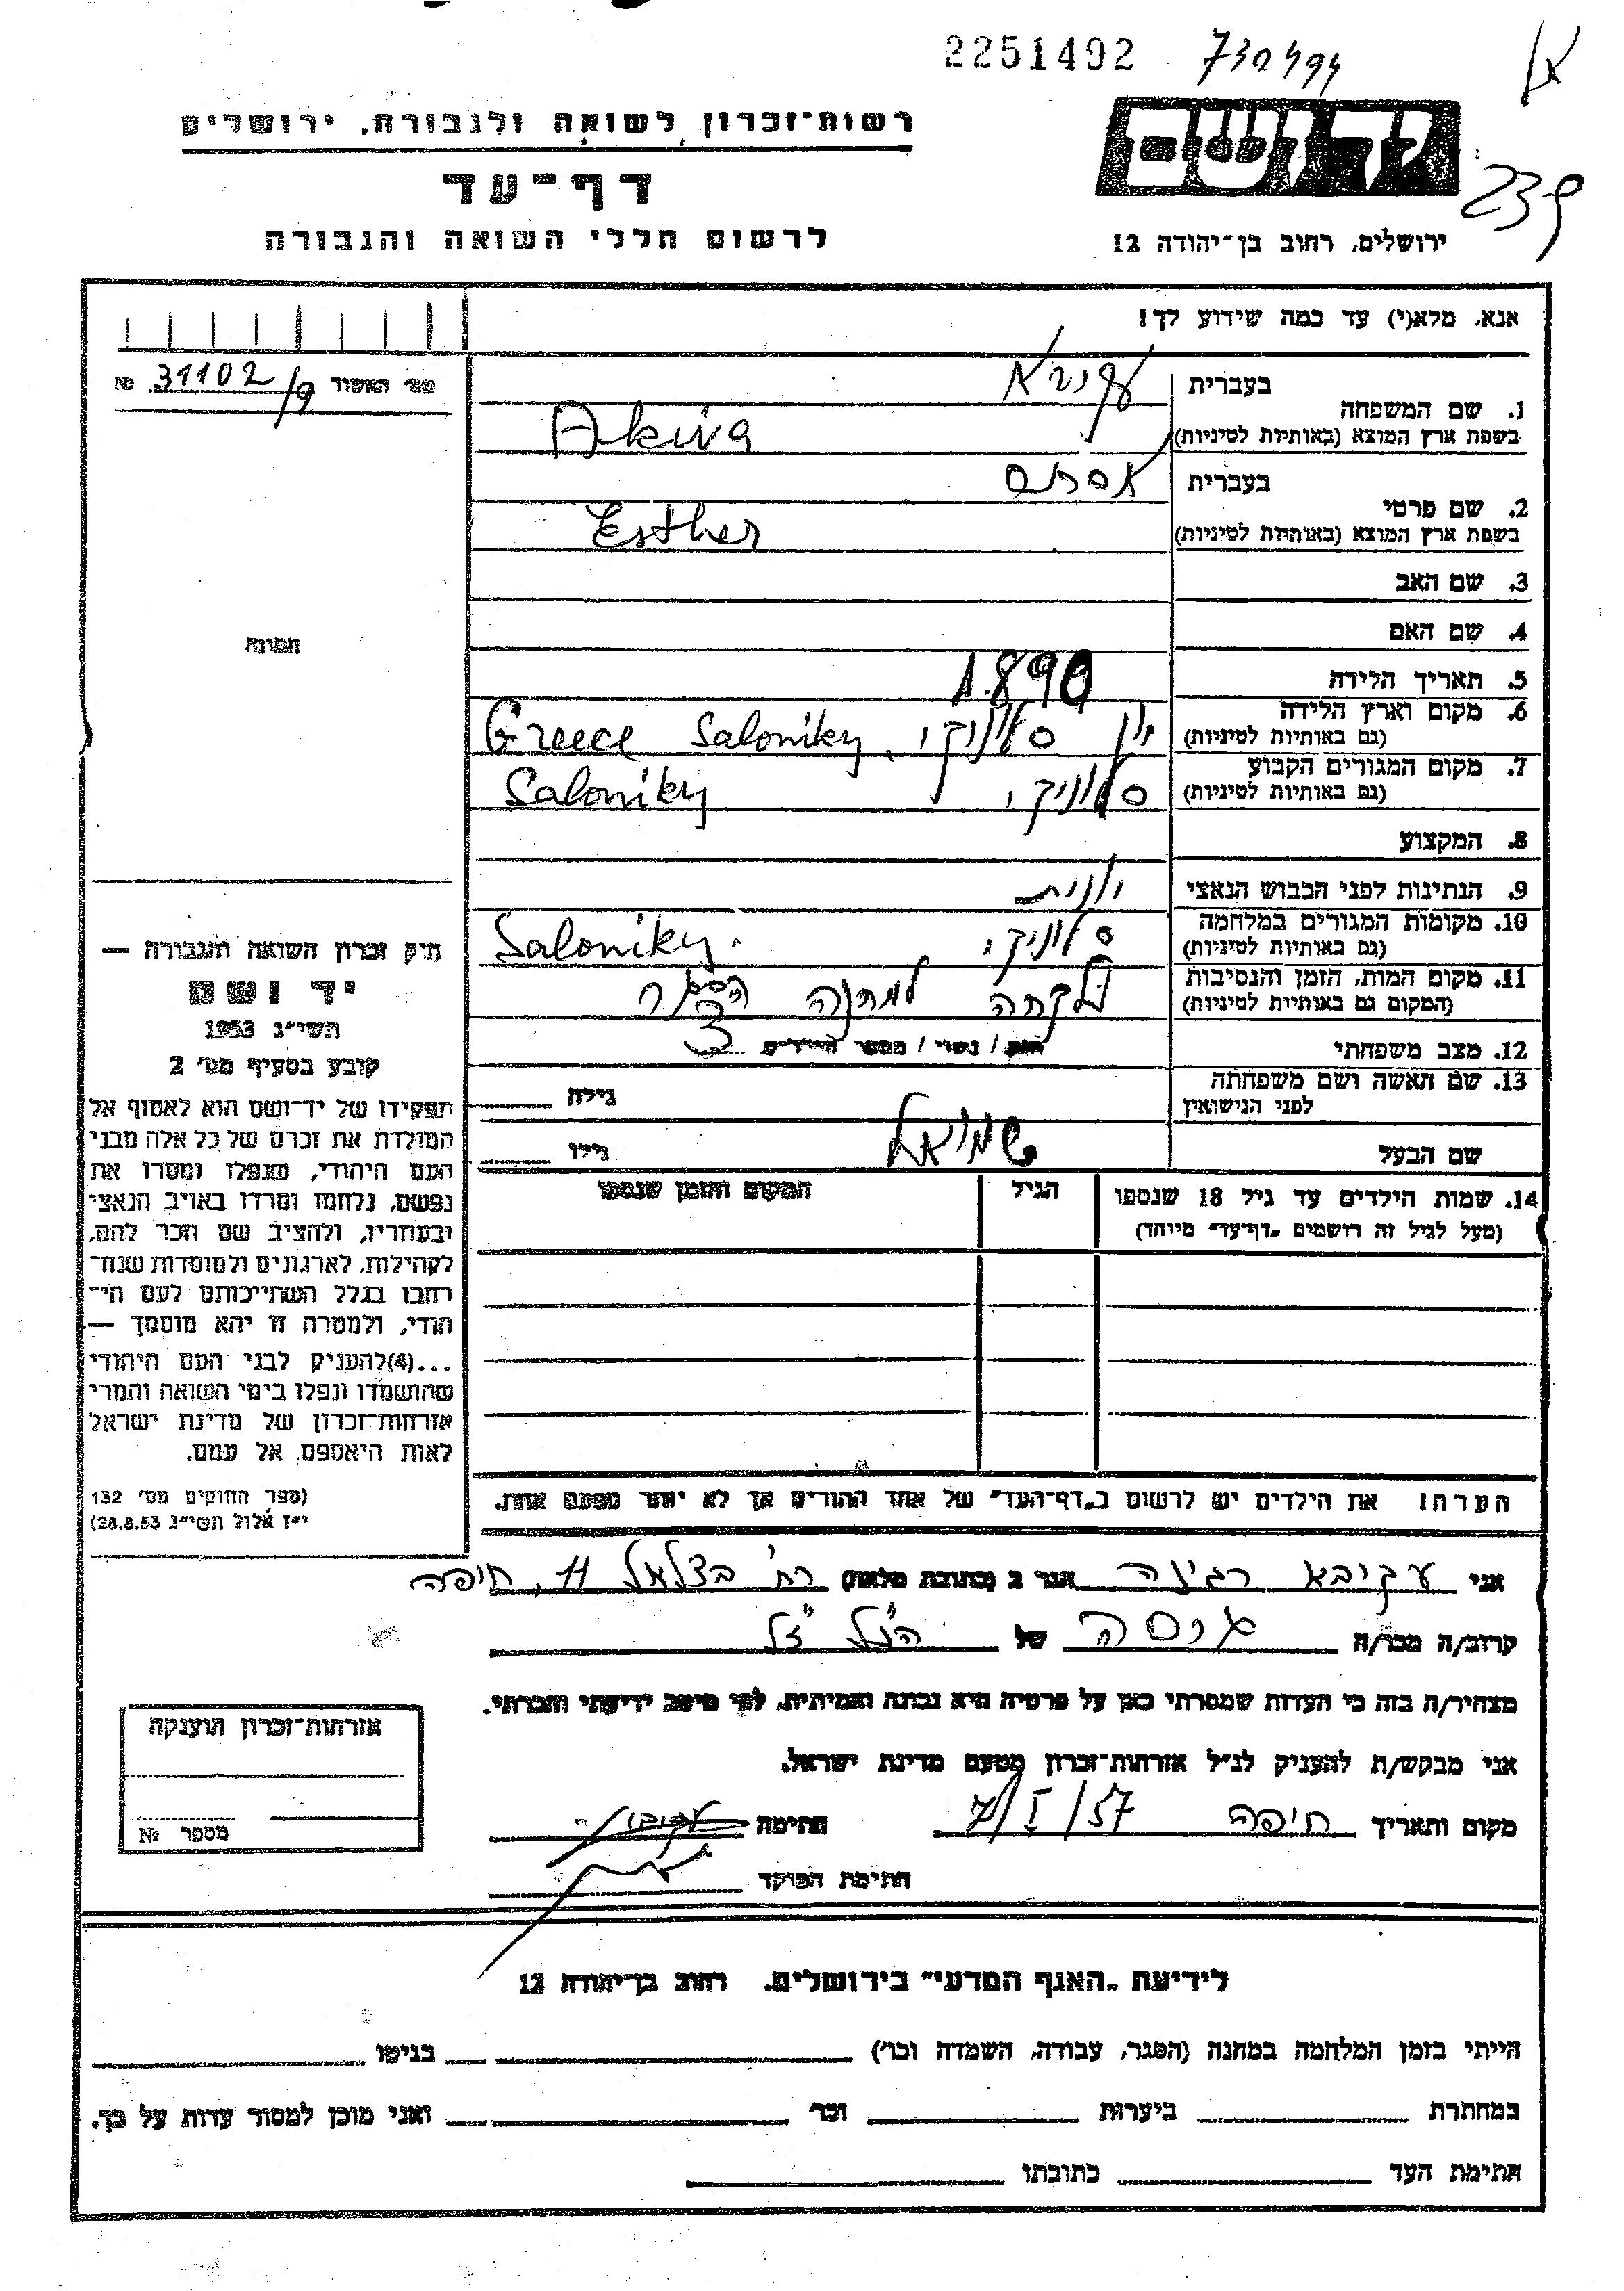 2251492 730494
רשות־זכרון לשואה ולגבורה, ירושלים
יד ושם
239
דף־עד
לרשום חללי השואה והגבורה
ירושלים, רחוב בן־יהודה 12
אנא, מלא(י) עד כמה שידוע לך!
מס׳ האשור 31102/9 №
בעברית
1. שם המשפחה
בשפת ארץ המוצא (באותיות לטיניות) Akiva
בעברית אסתר
2. שם פרטי
בשפת ארץ המוצא (באותיות לטיניות) Esther
3. שם האב
4. שם האם
תמונה
5. תאריך הלידה 1.890
6. מקום וארץ הלידה
(גם באותיות לטיניות) יון סלוניקי, Greece Saloniky
7. מקום המגורים הקבוע
(גם באותיות לטיניות) סלוניקי, Saloniky
8. המקצוע
9. הנתינות לפני הכבוש הנאצי יונית
10. מקומות המגורים במלחמה
(גם באותיות לטיניות) סלוניקי, Saloniky.
11. מקום המות, הזמן והנסיבות
(המקום גם באותיות לטיניות) נלקחה למחנה הסגר
12. מצב משפחתי רווק / נשוי / מספר הילדים 3
13. שם האשה ושם משפחתה
לפני הנישואין גילה
שם הבעל שמואל גילו
14. שמות הילדים עד גיל 18 שנספו הגיל המקום והזמן שנספו
(מעל לגיל זה רושמים „דף־עד״ מיוחד)
חיק זכרון השואה והגבורה —
יד ושם
תשי״ג 1953
קובע בסעיף מס׳ 2
תפקידו של יד־ושם הוא לאסוף אל
המולדת את זכרם של כל אלה מבני
העם היהודי, שנפלו ומסרו את
נפשם, נלחמו ומרדו באויב הנאצי
ובעוזריו, ולהציב שם וזכר להם,
לקהילות, לארגונים ולמוסדות שנח־
רבו בגלל השתייכותם לעם הי־
הודי, ולמטרה זו יהא מוסמך —
...(4)להעניק לבני העם היהודי
שהושמדו ונפלו בימי השואה והמרי
אזרחות־זכרון של מדינת ישראל
לאות היאספם אל עמם.
(ספר החוקים מס׳ 132
י״ז אלול תשי״ג 28.8.53)
הערה! את הילדים יש לרשום ב„דף־העד״ של אחד ההורים אך לא יותר מפעם אחת.
אני עקיבא רגינה הגר ב (כתובת מלאה) רח׳ בצלאל 11, חיפה
קרוב/ה מכר/ה גיסה של הנ״ל ז״ל
מצהיר/ה בזה כי העדות שמסרתי כאן על פרטיה היא נכונה ואמיתית, לפי מיטב ידיעתי והכרתי.
אני מבקש/ת להעניק לנ״ל אזרחות־זכרון מטעם מדינת ישראל.
מקום ותאריך חיפה 7/I/57 חתימה
חתימת הפוקד
אזרחות־זכרון הוענקה
מספר №
לידיעת „האגף המדעי״ בירושלים. רחוב בן־יהודה 12
הייתי בזמן המלחמה במחנה (הסגר, עבודה, השמדה וכר׳) בגיטו
במחתרת ביערות וכר׳ ואני מוכן למסור עדות על כך.
חתימת העד כתובתו